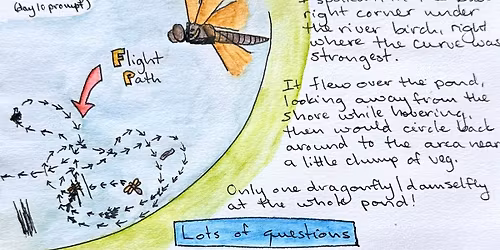 (day 10 prompt)
Flight
Path
right corner under
the river birch, right
where the curve was
strongest.
It flew over the pond,
looking away from the
shore while hovering,
then would circle back
around to the area near
a little clump of veg.
Only one dragonfly/damselfly
at the whole pond!
Lots of questions